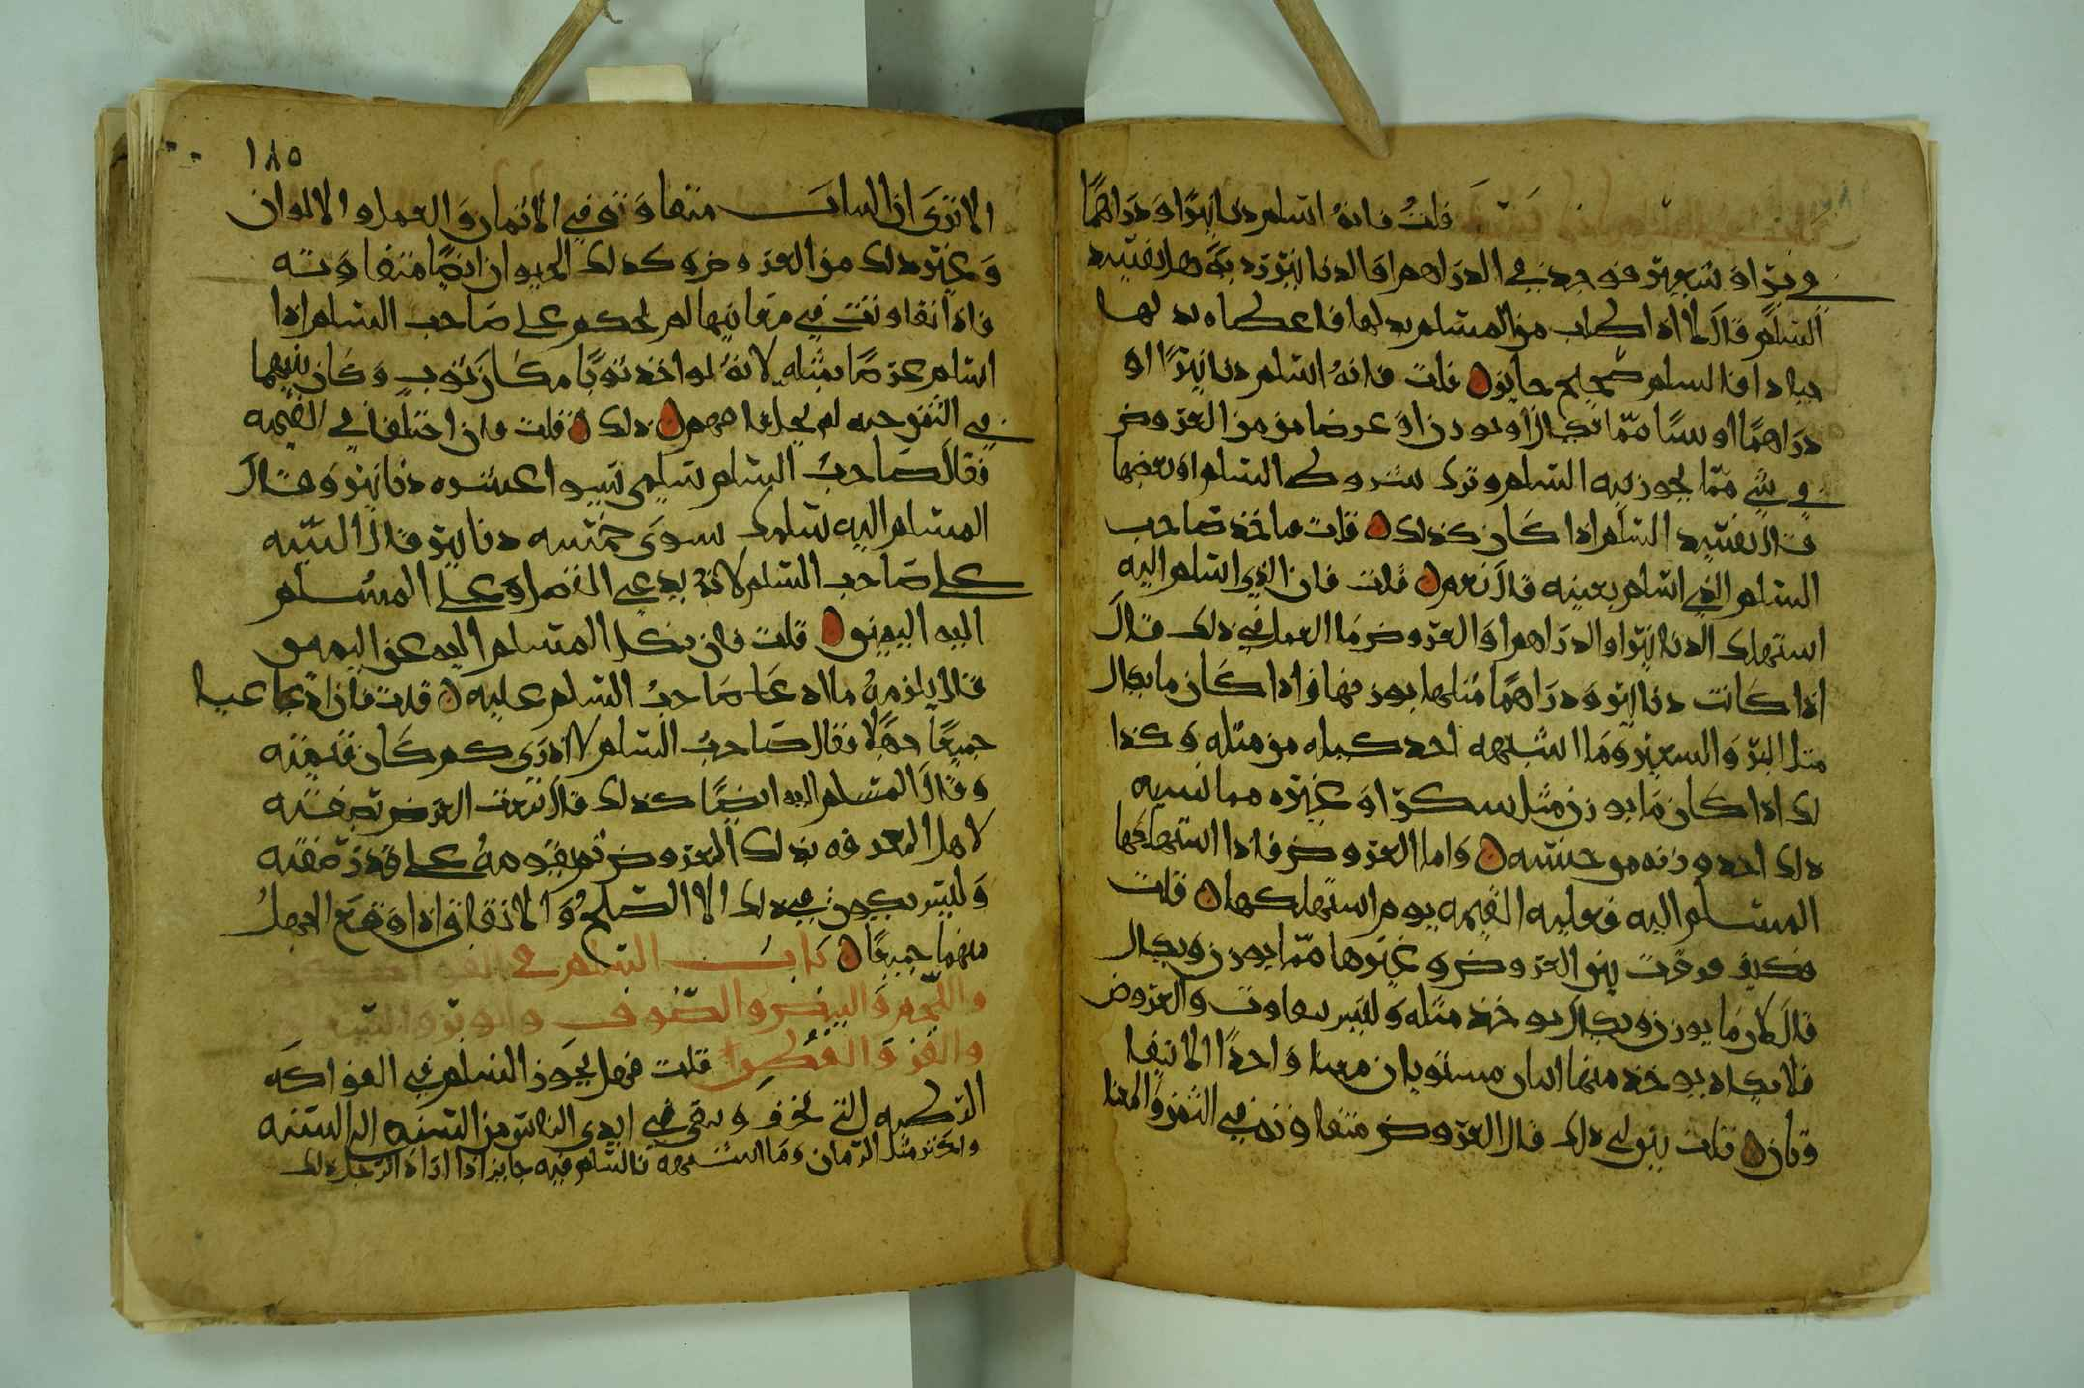 قلتُ فانهُ اسلم دنانيرًا ودراهمًا
في برّ او شعير فوجد في الدراهم او الدنانير رديّة هل يفسد
السلم قال لا اذا طلب من المسلم بدلها فاعطاه بدلها
جيادا فالسلم صحيح جايز قلت فانهُ اسلم دنانيرًا او
دراهمًا او شيًا ممّا يكال او يوزن او عرضا من العروض
في شي ممّا يجوز فيه السلم وترك شروط السلم او بعضها
قال يفسد السلم اذا كان كذلك قلت فياخذ صاحب
السلم الذي اسلم بعينه قال نعم قلت فان الذي اسلم اليه
استهلك الدنانير او الدراهم او العروض ما العمل في ذلك قال
اذا كانت دنانير ودراهمًا مثلها بوزنها واذا كان ما يكال
مثل البرّ والشعير وما اشبهه اخذ كيله من مثله وكذا
لك اذا كان ما يوزن مثل سكر او غيره مما نسيه
ذلك اخذ وزنه من جنسه واما العروض فاذا استهلكها
المسلم اليه فعليه القيمه يوم استهلكها قلت
فكيف فرقت بين العروض وغيرها ممّا يوزن ويكال
قال لان ما يوزن ويكال يوخذ مثله وليس يتفاوت والعروض
فلا يكاد يوخذ منها اثنان مستويان معنا واحدًا الا تيفا
وتان قلت بين لي ذلك قال العروض متفاوتة في الثمن والمعنا
١٨٥
الا ترى ان الثياب متفاوته في الاثمان والعمل والالوان
وغير ذلك من العروض وكذلك الحيوان ايضًا متفاوته
فاذا تفاوتت في معانيها لم يحكم على صاحب السلم اذا
اسلم عرضًا بمثله لانهُ لو اخذ ثوبًا مكان ثوب وكان بينهما
في الثمن حبه لم يحل لها فهم ذلك قلت وان اختلفا في القيمه
فقال صاحبُ السلم سلمي يسوا عشره دنانير وقال
المسلم اليه سلمك يسوى خمسه دنانير قال البينه
على صاحب السلم لانهُ يدعي الفضل وعلى المسلم
اليه اليمين قلت فان نكل المسلم اليه عن اليمين
قال يلزمهُ ما ادعا صاحبُ السلم عليه قلت فان ادعيا
جميعًا جهلا فقال صاحبُ السلم لا ادري كم كان قيمته
وقال المسلم اليه ايضًا كذلك قال ينعت العرض بصفته
لاهل المعرفه بذلك العروض ثم يقومهُ على قدر صفته
وليس يكون في ذلك الا الصلح والاتفاق اذا وقع الجهلُ
منهما جميعًا باب السلم في الفواكه
واللحم والبيض والصوف والوبر والشعر
والقز والقطن قلت فهل يجوز السلم في الفواكه
الرطبه التي تخزن وتبقى في ايدي الناس من السنه الى السنه
ويكنز مثل الرمان وما اشبهه فالسلم فيه جايز اذا اراد الرجل ذلك